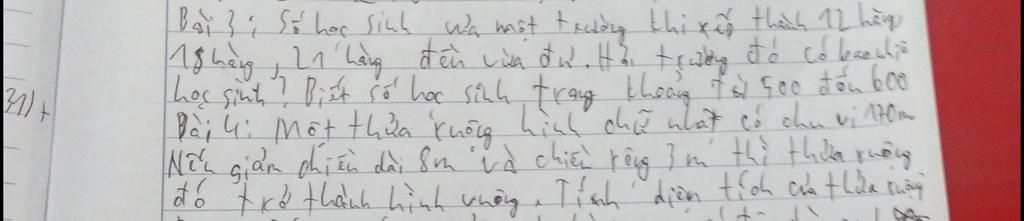 Bài 3: Số học sinh của một trường khi xếp thành 12 hàng
18 hàng, 21 hàng đều vừa đủ. Hỏi trường đó có bao nhiê
học sinh? Biết số học sinh trong khoảng từ 500 đến 600
Bài 4: Một thửa ruộng hình chữ nhật có chu vi 170m
Nếu giảm chiều dài 8m và chiều rộng 3m thì thửa ruộng
đó trở thành hình vuông. Tính diện tích của thửa ruộng